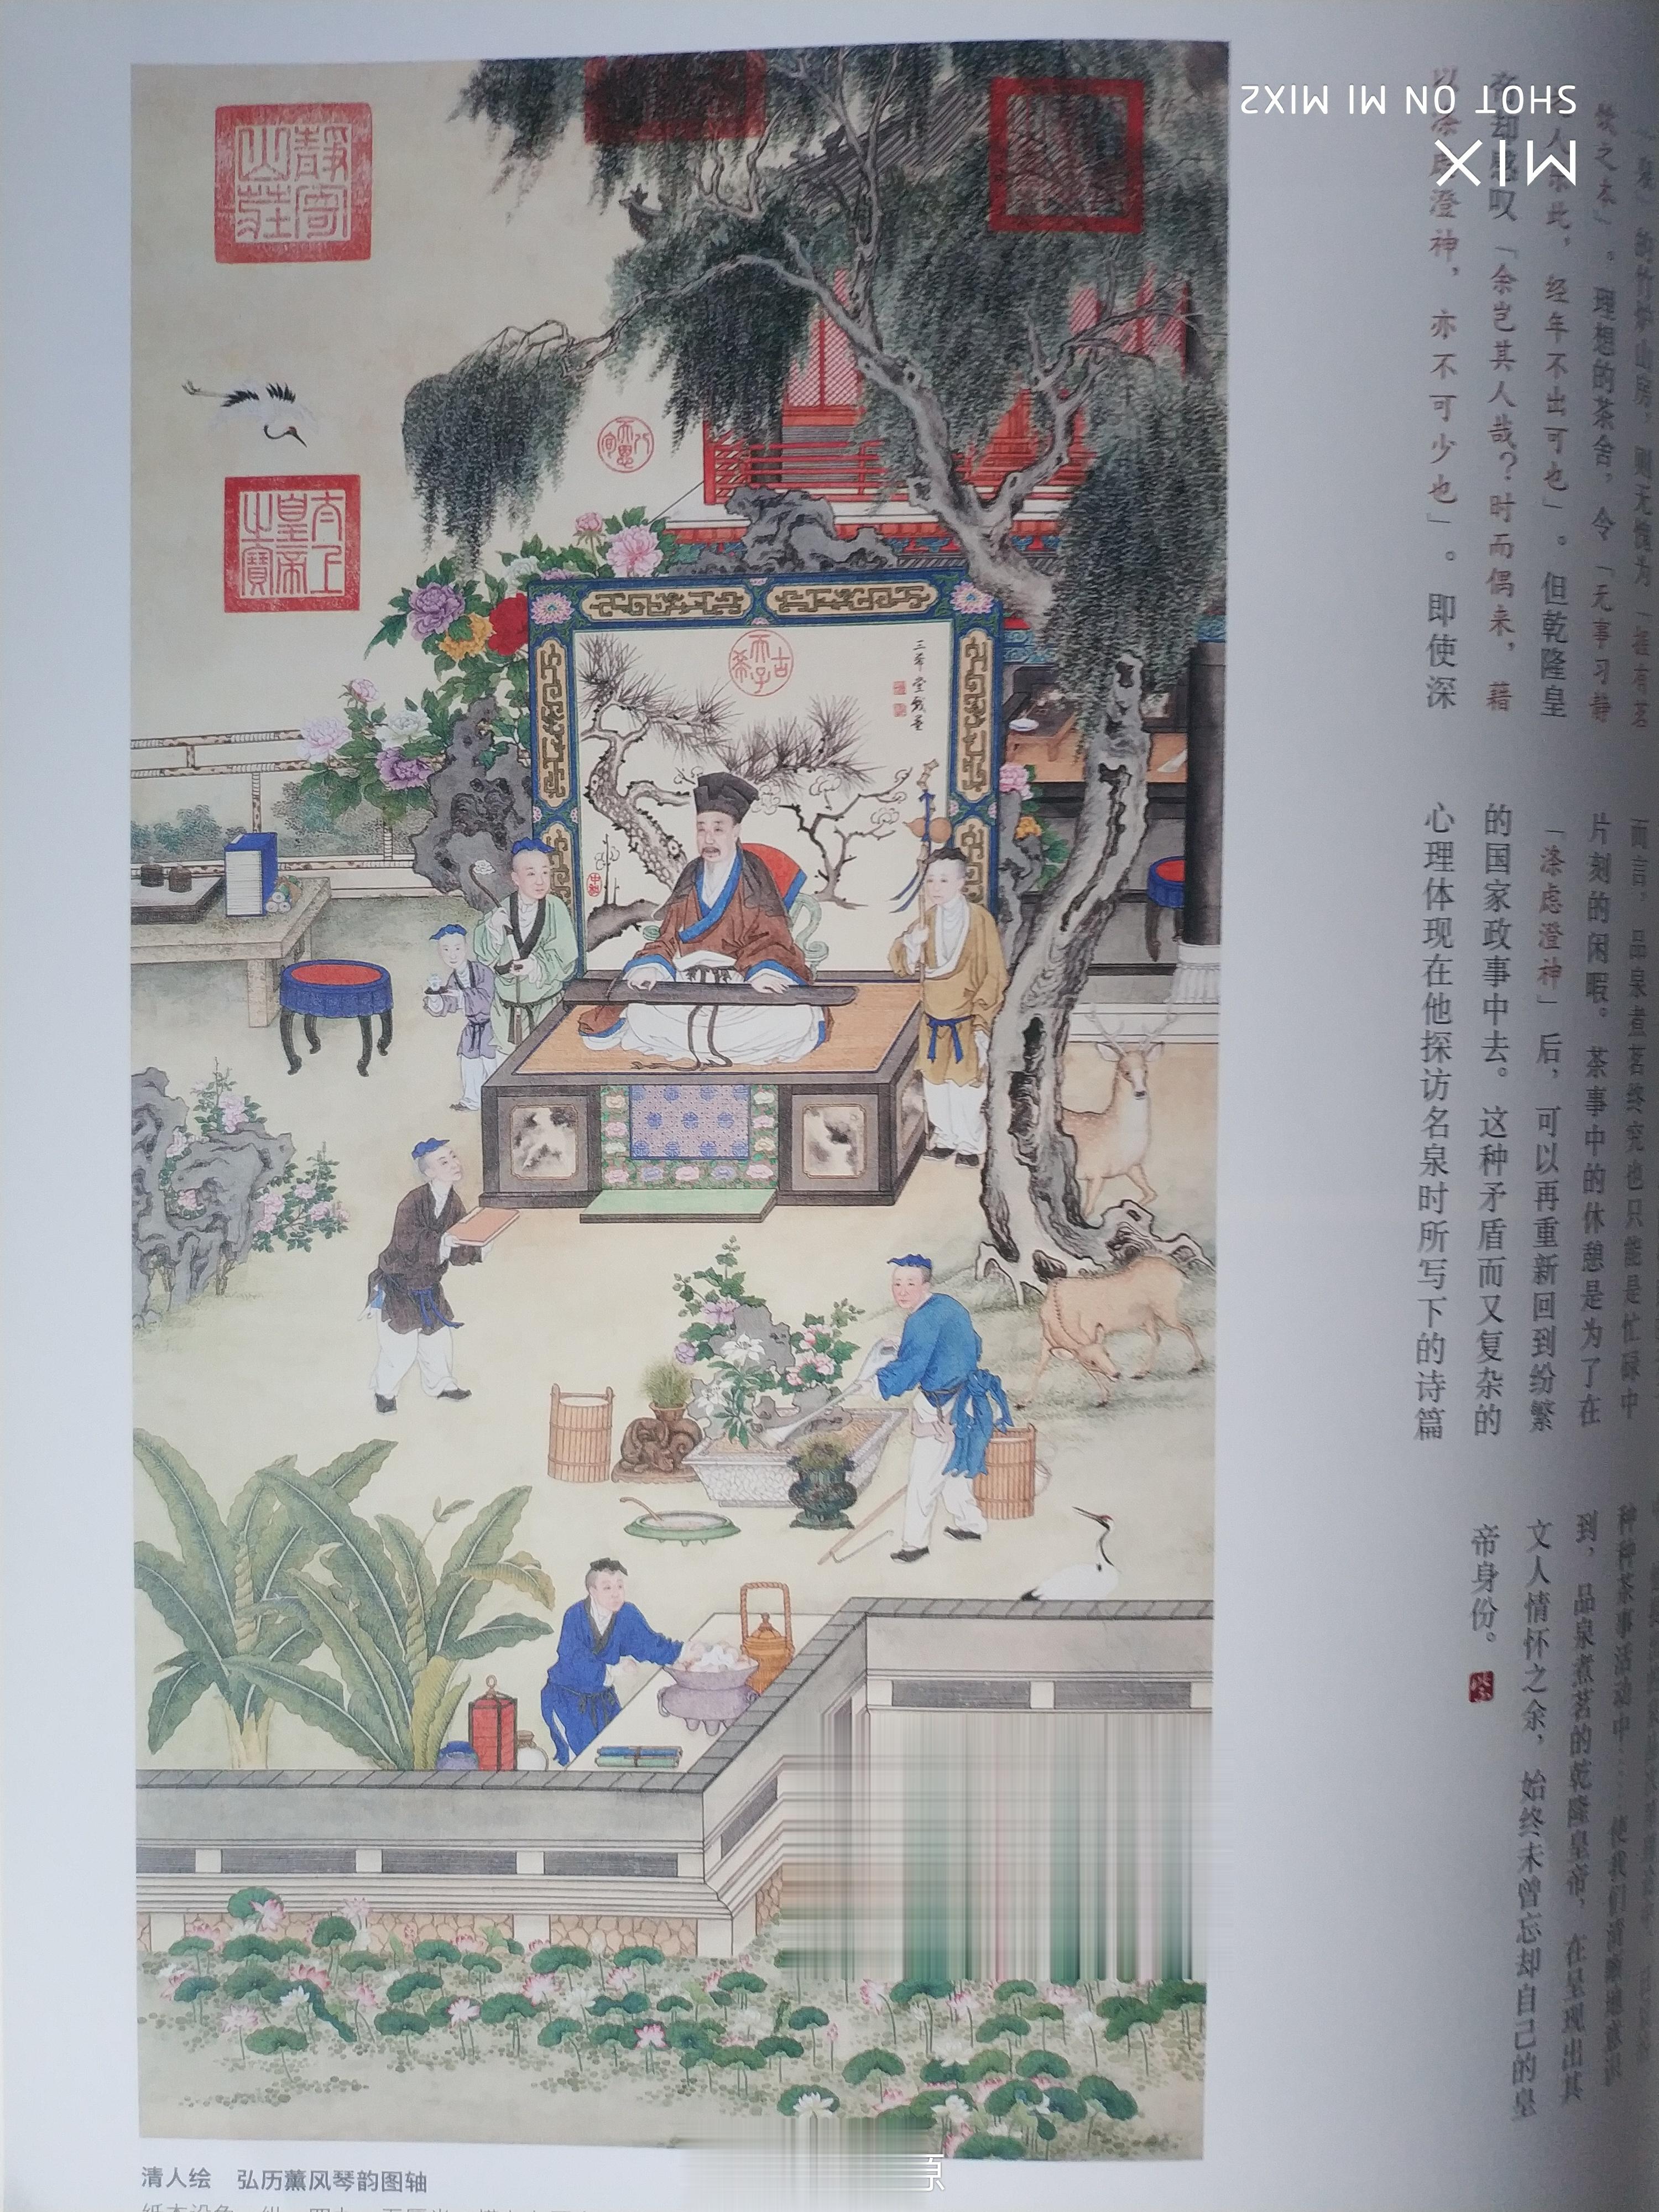 SHOT ON MI MIX2
MIX
的竹炉山房，则无愧为「握有茗
饮之本」。理想的茶舍，令「无事习静
此，经年不出可也」。但乾隆皇
帝却感叹「余岂其人哉？时而偶来，藉
以涤虑澄神，亦不可少也」。即使深
而言，品泉煮茗终究也只能是忙碌中
片刻的闲暇。茶事中的休憩是为了在
「涤虑澄神」后，可以再重新回到纷繁
的国家政事中去。这种矛盾而又复杂的
心理体现在他探访名泉时所写下的诗篇
种种茶事活动中……使我们清晰地意识
到，品泉煮茗的乾隆皇帝，在呈现出其
文人情怀之余，始终未曾忘却自己的皇
帝身份。
靜寄山莊
太上皇帝之寶
古希天子
三希堂戲墨
清人绘 弘历薰风琴韵图轴